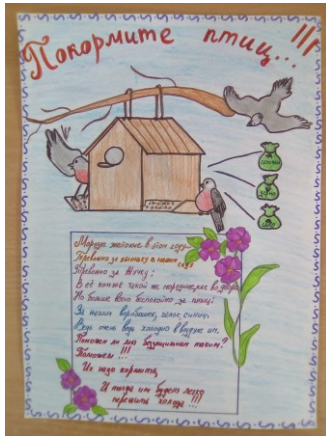 Покормите птиц...!!!
Морозы жестокие в этом году
Тревожно за яблоньку в нашем саду
Тревожно за Жучку:
В её конуре такой же мороз, как во дворе
Но больше всего беспокойно за птиц:
За наших воробышек, галок, синиц.
Ведь очень уж холодно в воздухе им.
Поможем ли мы беззащитным таким?
Поможем!!!
Их надо кормить,
И тогда им будет легко
пережить холода...!!!